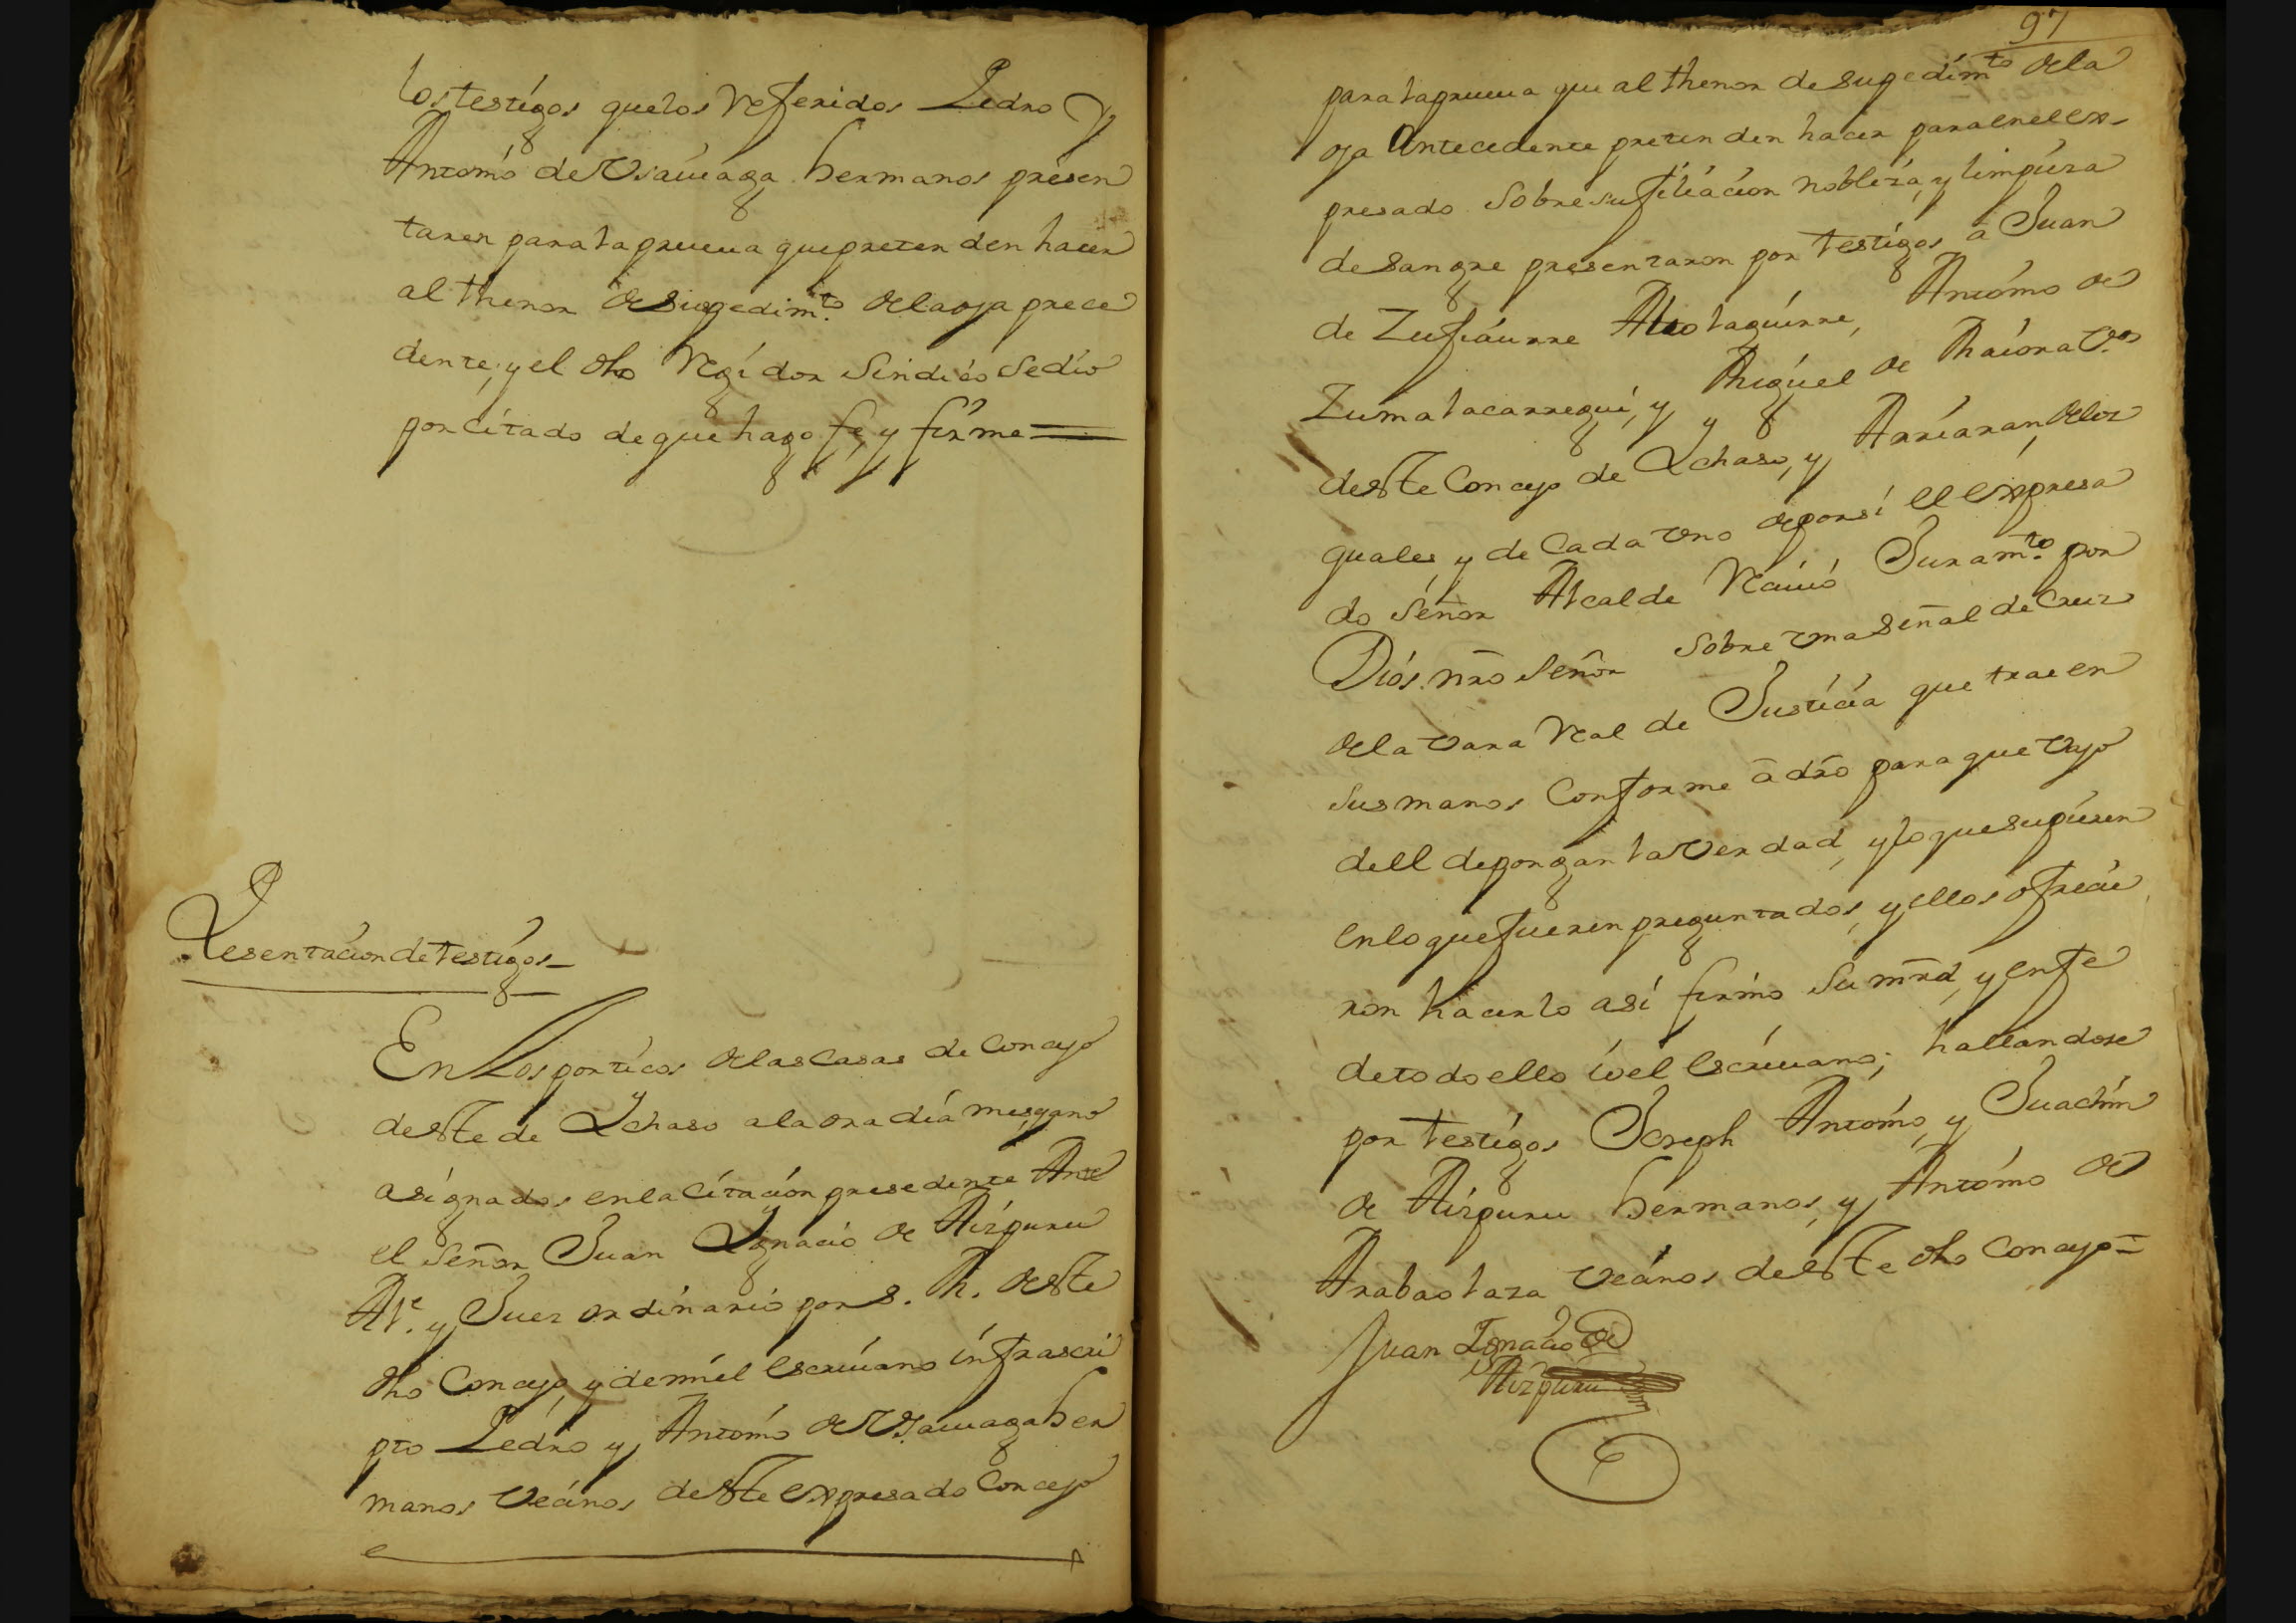 los testigos que los Referidos Pedro y
Antonio de Vsauiaga hermanos presen
taren para la prueua que pretenden hacer
al thenor de su pedim.to de la oja prece
dente, y el dho Regidor Sindico se dio
por citado de que hago fe, y firme
Presentacion de testigos
En Los porticos de las Casas de Concejo
deste de Ychaso a la ora dia mes, y año
asignados en la citacion presedente Ante
el Señor Juan Ygnacio de Aizpuru
Al.e y Juez ordinario por S. M. deste
dho Concejo, y de mi el escriuano infrascri
pto Pedro y Antonio de Vsauiaga her
manos vecinos deste expresado Concejo
97
para la prueua que al thenor de su pedim.to de la
oja Antecedente pretenden hacer para en el ex-
presado sobre su filiacion nobleza, y limpieza
de sangre presentaron por testigos a Juan
de Zufiaurre Altolaguirre, Antonio de
Zumalacarregui, y Miguel de Maiora V.os
deste Concejo de Ychaso, y Arriaran, de los
quales, y de Cada vno de por si el expresa
do Señor Alcalde Reciuió Juram.to por
Dios nr̃o Señor sobre vna señal de Cruz
de la vara Real de Justicia que trae en
sus manos Conforme a dr̃o para que vajo
dell depongan la verdad, y lo que supieren
en lo que fueren preguntados, y ellos ofrecie
ron hacerlo asi firmo su mr̃d, y en fe
de todo ello io el escriuano; hallandose
por testigos Joseph Antonio, y Juachin
de Aizpuru hermanos, y Antonio de
Arabaolaza vecinos deste dho Concejo=
Juan Ignacio de
Aizpuru